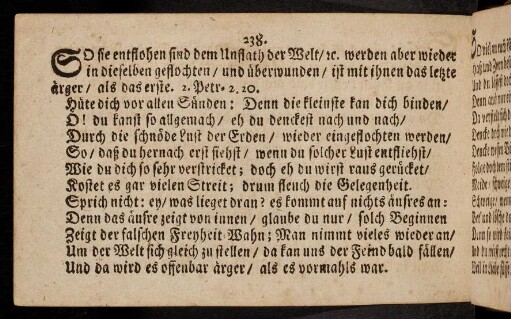 238.
SO sie entflohen sind dem Unflath der Welt/ ꝛc. werden aber wieder
in dieselben geflochten/ und überwunden/ ist mit ihnen das letzte
ärger/ als das erste. 2. Petr. 2. 20.
Hüte dich vor allen Sünden: Denn die kleinste kan dich binden/
O! du kanst so allgemach/ eh du denckest nach und nach/
Durch die schnöde Lust der Erden/ wieder eingeflochten werden/
So/ daß du hernach erst siehst/ wenn du solcher Lust entfliehst/
Wie du dich so sehr verstricket; doch eh du wirst raus gerücket/
Kostet es gar vielen Streit; drum fleuch die Gelegenheit.
Sprich nicht: ey/ was lieget dran? es kommt auf nichts äusres an:
Denn das äusre zeigt von innen/ glaube du nur/ solch Beginnen
Zeigt der falschen Freyheit Wahn; Man nimmt vieles wieder an/
Um der Welt sich gleich zu stellen/ da kan uns der Feind bald fällen/
Und da wird es offenbar ärger/ als es vormahls war.